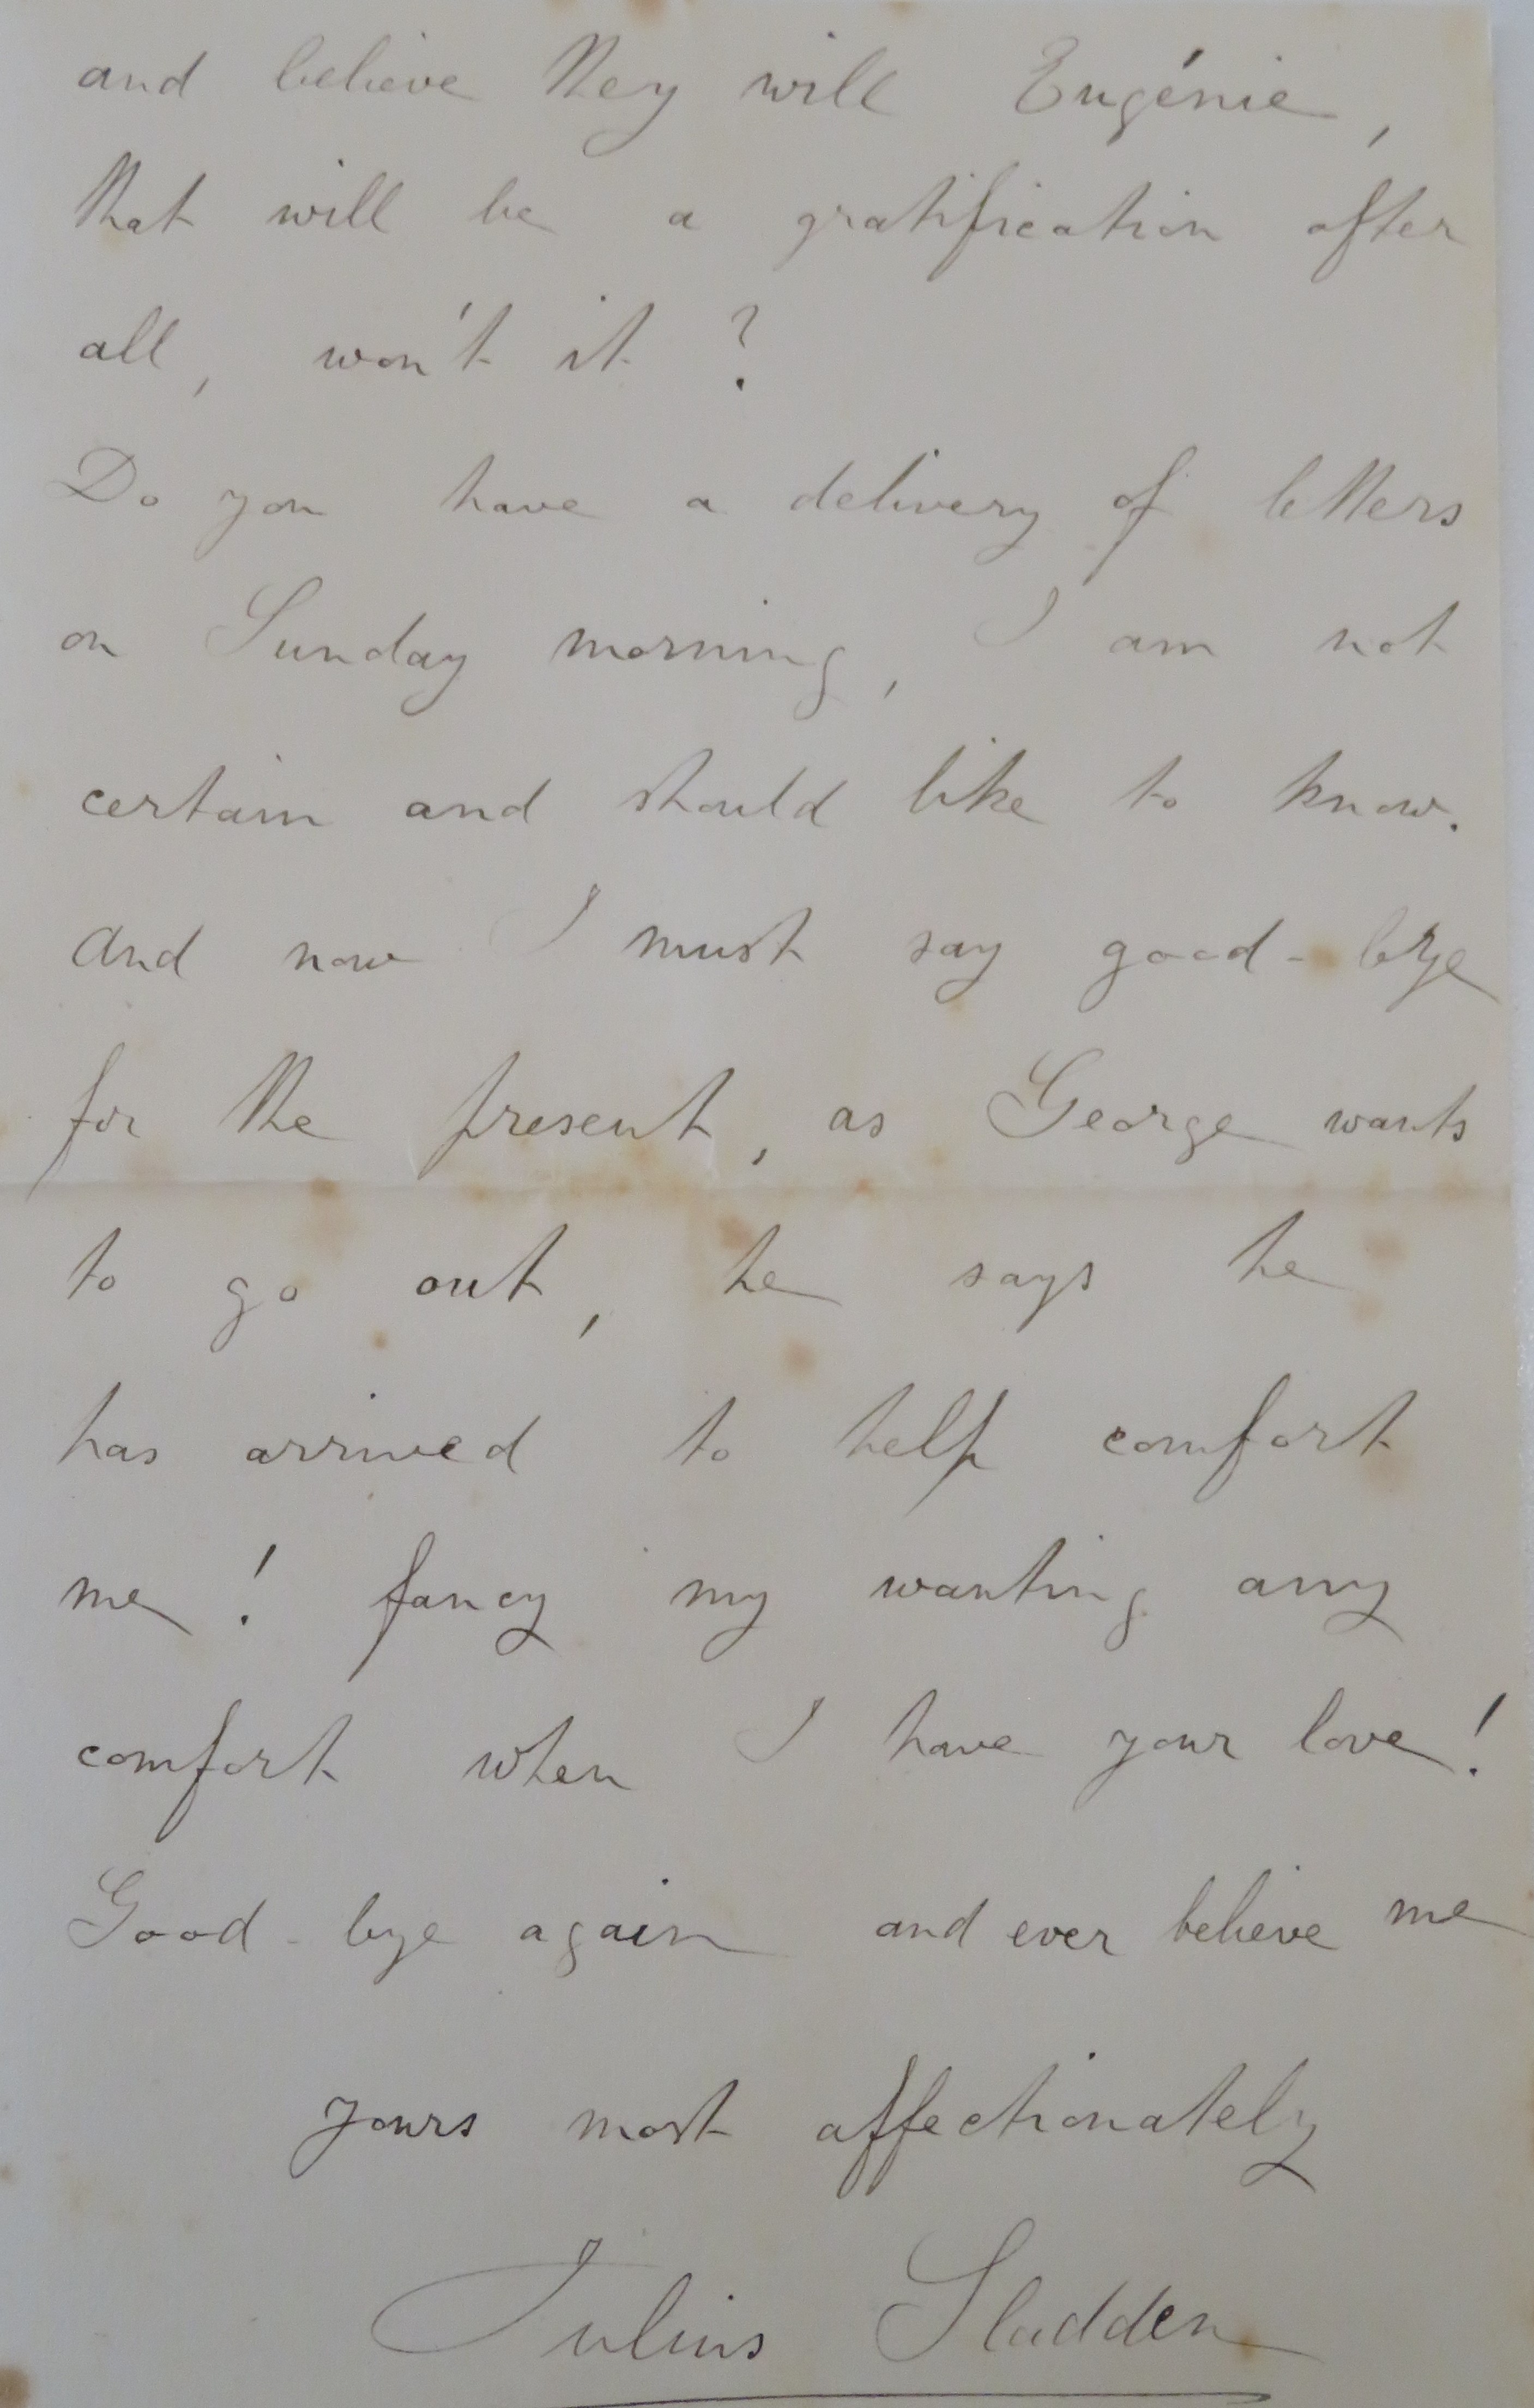 and believe they will Eugénie,
that will be a gratification after
all, won't it?
Do you have a delivery of letters
on Sunday morning, I am not
certain and should like to know.
And now I must say good-bye
for the present, as George wants
to go out, he says he
has arrived to help comfort
me! fancy my wanting any
comfort when I have your love!
Good-bye again and ever believe me
yours most affectionately
Julius Sladden